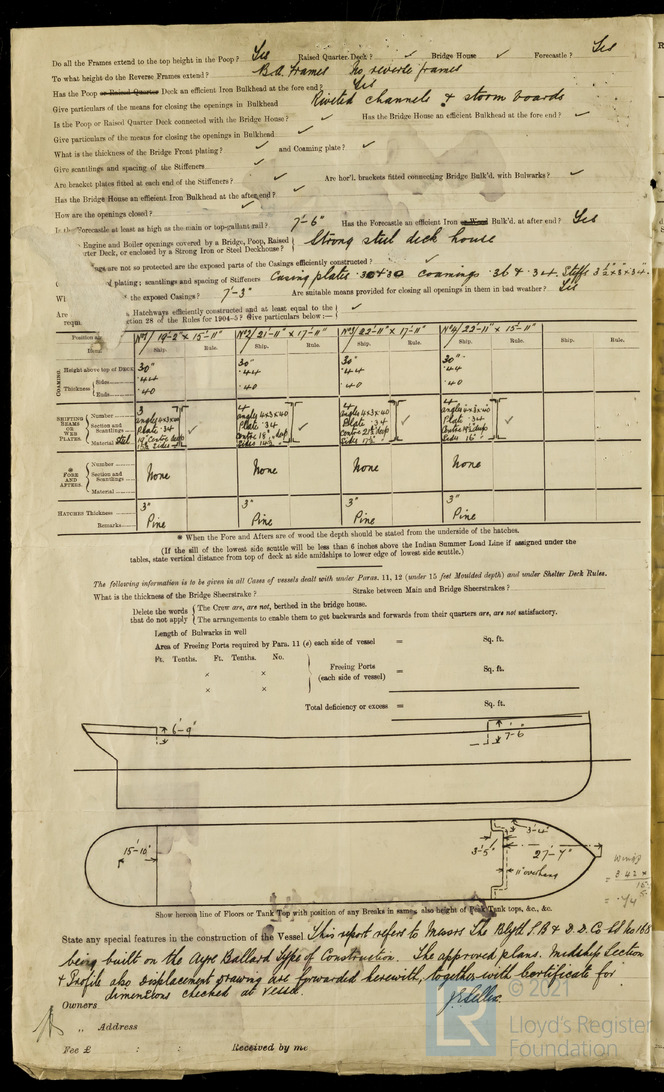 Do all the Frames extend to the top height in the Poop? Yes Raised Quarter Deck? ✓ Bridge House ✓ Forecastle? Yes
To what height do the Reverse Frames extend? B.A. Frames No reverse frames
Has the Poop or Raised Quarter Deck an efficient Iron Bulkhead at the fore end? Yes
Give particulars of the means for closing the openings in Bulkhead Riveted channels & storm boards
Is the Poop or Raised Quarter Deck connected with the Bridge House? ✓ Has the Bridge House an efficient Bulkhead at the fore end? ✓
Give particulars of the means for closing the openings in Bulkhead ✓
What is the thickness of the Bridge Front plating? ✓ and Coaming plate? ✓
Give scantlings and spacing of the Stiffeners ✓
Are bracket plates fitted at each end of the Stiffeners? ✓ Are hor'l. brackets fitted connecting Bridge Bulk'd. with Bulwarks? ✓
Has the Bridge House an efficient Iron Bulkhead at the after end? ✓
How are the openings closed? ✓
Is the Forecastle at least as high as the main or top-gallant rail? 7'-6" Has the Forecastle an efficient Iron or Wood Bulk'd. at after end? Yes
Engine and Boiler openings covered by a Bridge, Poop, Raised
rter Deck, or enclosed by a Strong Iron or Steel Deckhouse? Strong steel deck house
ngs are not so protected are the exposed parts of the Casings efficiently constructed? ✓
of plating; scantlings and spacing of Stiffeners Casing plates .30 & 30 coamings .36 & .34. Stiffs 3½"×3×34.
of the exposed Casings? 7'-3" Are suitable means provided for closing all openings in them in bad weather? Yes
Are Hatchways efficiently constructed and at least equal to the
requi ction 28 of the Rules for 1904-5? Give particulars below:— ✓
Position an No 1/ 19'-2" × 15'-11" No 2/ 21'-11" × 17'-11" No 3/ 22'-11" × 17'-11" No 4/ 22'-11" × 15'-11"
Item Ship. Rule. Ship. Rule. Ship. Rule. Ship. Rule. Ship. Rule.
COAMING Height above top of DECK 30" 30" 30" 30"
Thickness Sides .44 .44 .44 .44
Ends .40 .40 .40 .40
SHIFTING BEAMS OR WEB PLATES. Number 3 4 4 4
Section and Scantlings angles 4×3×40 angles 4×3×40 angles 4×3×40 angles 4×3×40
Plate .34 Plate .34 Plate .34 Plate .34
Material Steel Centre deep Centre 18" deep Centre deep Centre deep
Sides Sides Sides Sides 16"
* FORE AND AFTERS. Number
Section and Scantlings None None None None
Material
HATCHES Thickness 3" 3" 3" 3"
Remarks Pine Pine Pine Pine
* When the Fore and Afters are of wood the depth should be stated from the underside of the hatches.
(If the sill of the lowest side scuttle will be less than 6 inches above the Indian Summer Load Line if assigned under the
tables, state vertical distance from top of deck at side amidships to lower edge of lowest side scuttle.)
The following information is to be given in all Cases of vessels dealt with under Paras. 11, 12 (under 15 feet Moulded depth) and under Shelter Deck Rules.
What is the thickness of the Bridge Sheerstrake? Strake between Main and Bridge Sheerstrakes?
Delete the words The Crew are, are not, berthed in the bridge house.
that do not apply The arrangements to enable them to get backwards and forwards from their quarters are, are not satisfactory.
Length of Bulwarks in well
Area of Freeing Ports required by Para. 11 (e) each side of vessel = Sq. ft.
Ft. Tenths. Ft. Tenths. No.
× × Freeing Ports = Sq. ft.
× × (each side of vessel)
Total deficiency or excess = Sq. ft.
6'-9"
7'-6"
15'-10"
3'-5"
3'-4"
27'-7"
11" overhang
Show hereon line of Floors or Tank Top with position of any Breaks in same, also height of Peak Tank tops, &c., &c.
State any special features in the construction of the Vessel This report refers to Messrs The Blyth S.B & D.D. Co Ld No 168
being built on the Ayre Ballard Type of Construction. The approved plans. Midship Section
& Profile also displacement drawing are forwarded herewith, together with Certificate for
dimensions checked at vessel.
Owners
„ Address
Fee £ : : Received by me
LR
© 2021
Lloyd's Register
Foundation